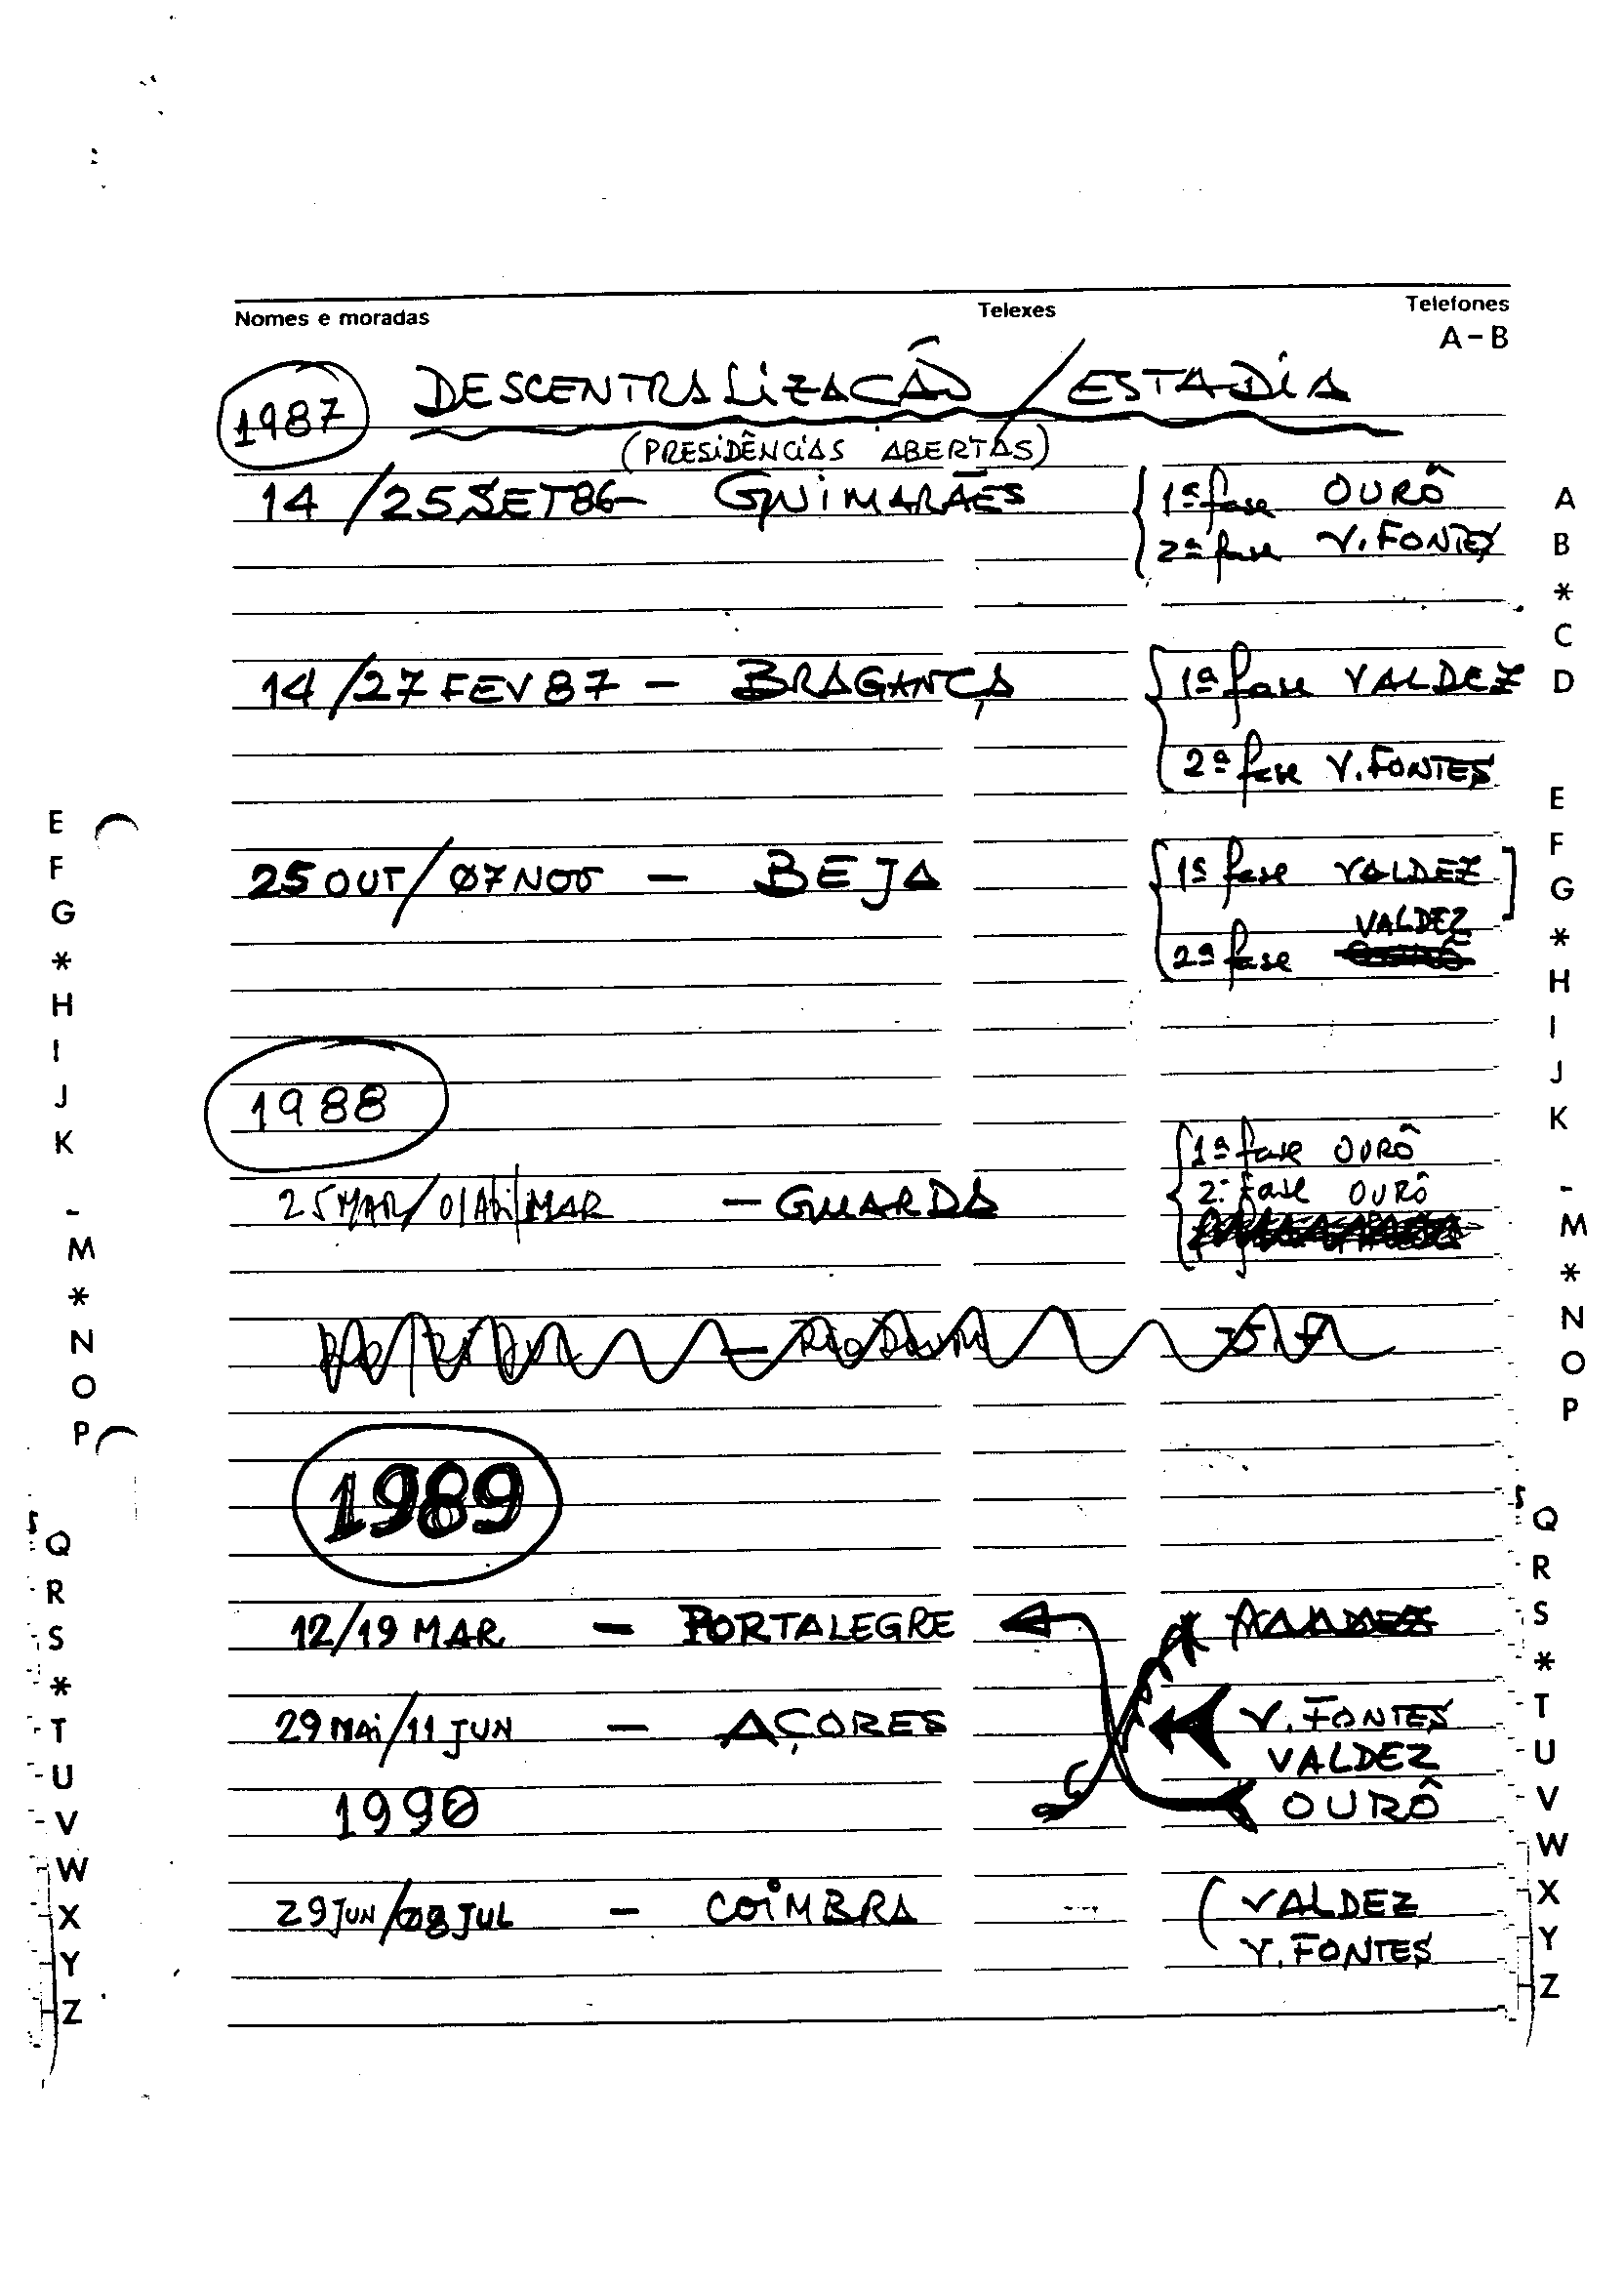 Nomes e moradas Telexes Telefones
A-B
1987 DESCENTRALIZAÇÃO / ESTADIA
(PRESIDÊNCIAS ABERTAS)
14/25 SET 86 - GUIMARÃES 1ª fase OURÔ
2ª fase V. FONTES
14/27 FEV 87 - BRAGANÇA 1ª fase VALDEZ
2ª fase V. FONTES
25 OUT/07 NOV - BEJA 1ª fase VALDEZ
VALDEZ
2ª fase
1988
1ª fase OURÔ
25 MAR/01 MAR - GUARDA 2ª fase OURÔ
1989
12/19 MAR - PORTALEGRE
29 MAI/11 JUN - AÇORES V. FONTES
VALDEZ
1990 OURÔ
29 JUN/08 JUL - COIMBRA (VALDEZ
V. FONTES
A
B
*
C
D
E
F
G
*
H
I
J
K
-
M
*
N
O
P
Q
R
S
*
T
U
V
W
X
Y
Z
E
F
G
*
H
I
J
K
-
M
*
N
O
P
Q
R
S
*
T
U
V
W
X
Y
Z